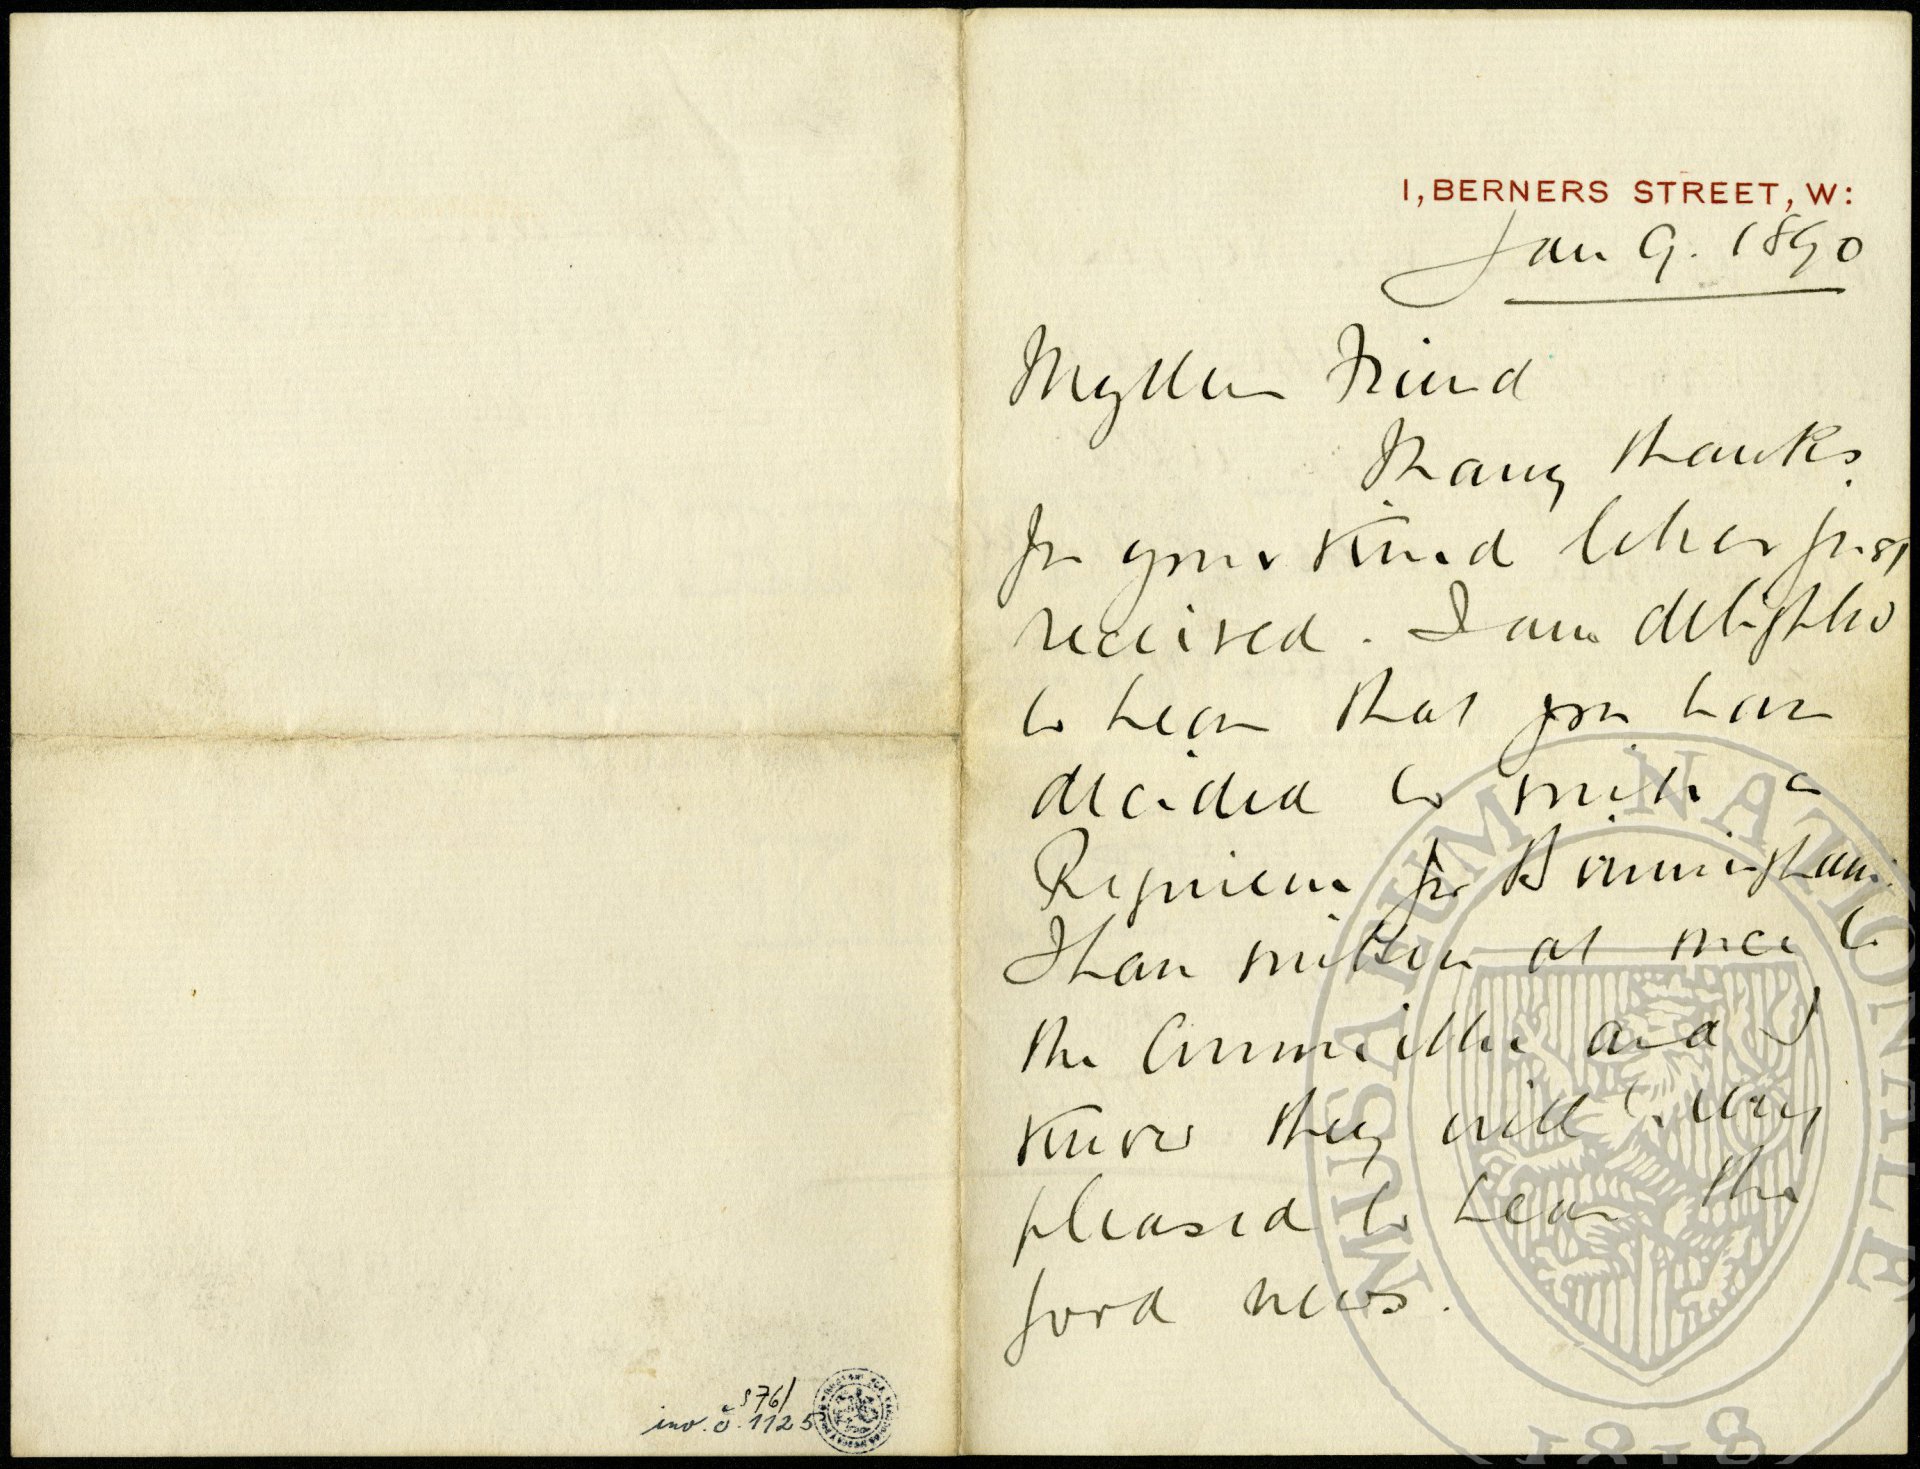 1, BERNERS STREET, W:
Jan 9. 1890
My dear Friend
Many thanks
for your kind letter just
received. I am delighted
to hear that you have
decided to write a
Requiem for Birmingham.
I have written at once to
the Committee and I
know they will be very
pleased to hear the
good news.
576/
inv. č. 1125
MUSAEUM NATIONALE
1818